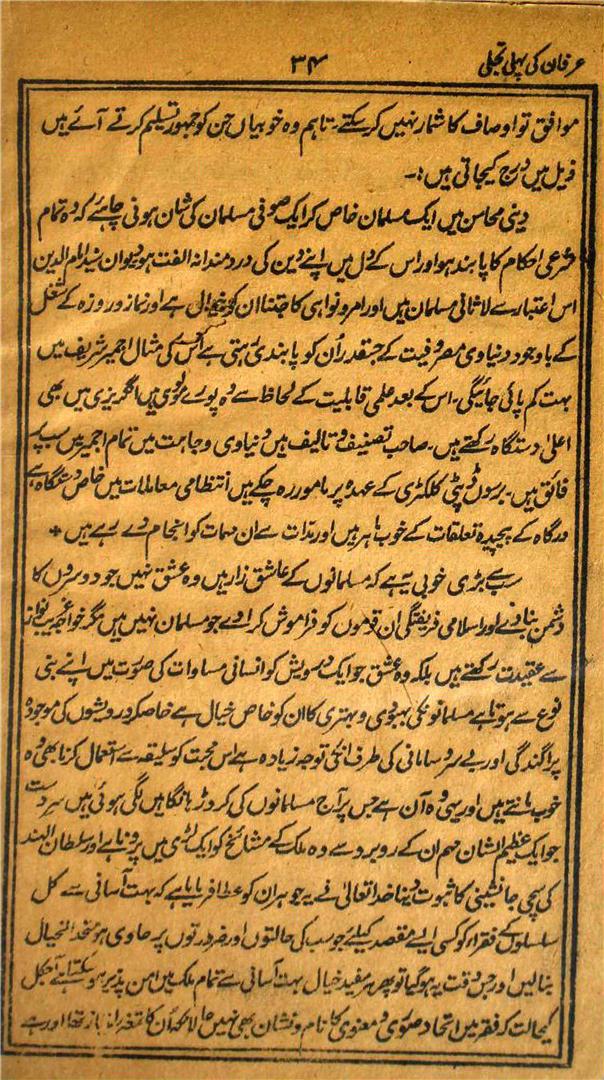 عرفان کی پہلی تجلی
۳۴
موافق تو اوصاف کا شمار نہیں کرسکتے۔ تاہم وہ خوبیاں جن کو جمہور تسلیم کرتے آئے ہیں
ذیل میں درج کیجاتی ہیں:۔
دینی محاسن میں ایک مسلمان خاص کر ایک صوفی مسلمان کی شان ہونی چاہئے کہ وہ تمام
شرعی احکام کا پابند ہو اور اس کے دل میں اپنے دین کی دردمندانہ الفت ہو دیوان سید امام الدین
اس اعتبار سے لاثانی مسلمان ہیں اور امر و نواہی کا جتنا ان کو خیال ہے اور نماز و روزہ کے شغل
کے باوجود دنیاوی مصروفیت کے جسقدر اُن کو پابندی رہتی ہے اُس کی مثال اجمیر شریف میں
بہت کم پائی جائیگی۔ اس کے بعد علمی قابلیت کے لحاظ سے وہ پورے مولوی ہیں انگریزی میں بھی
اعلیٰ دستگاہ رکھتے ہیں۔ صاحب تصنیف و تالیف ہیں دنیاوی وجاہت میں تمام اجمیر میں سب پر
فائق ہیں۔ برسوں ڈپٹی کلکٹری کے عہدہ پر مامور رہ چکے ہیں انتظامی معاملات میں خاص دستگاہ ہے
درگاہ کے پیچیدہ تعلقات کے خوب ماہر ہیں اور مدت سے ان مہمات کو انجام دے رہے ہیں +
سب سے بڑی خوبی یہ ہے کہ مسلمانوں کے عاشق زار ہیں وہ عشق نہیں جو دوسروں کا
دشمن بنا دے اور اسلامی فریفتگی ان قوموں کو فراموش کرا دے جو مسلمان نہیں ہیں مگر خواجہ غریب نواز
سے عقیدت رکھتے ہیں بلکہ وہ عشق جو ایک درویش کو انسانی مساوات کی صورت میں اپنے بنی
نوع سے ہوتا ہے مسلمانونکی بہبودی و بہتری کا ان کو خاص خیال ہے خاصکر درویشوں کی موجودہ
پراگندگی اور بے سروسامانی کی طرف انکی توجہ زیادہ ہے اس محبت کو سلیقہ سے استعمال کرنا بھی وہ
خوب جانتے ہیں اور یہی وہ آن ہے جس پر آج مسلمانوں کی کروڑہا نگاہیں لگی ہوئی ہیں سردست
جو ایک عظیم الشان مہم ان کے روبرو ہے وہ ملک کے مشائخ کو ایک لڑی میں پرونا ہے اور سلطان الہند
کی سچی جانشینی کا ثبوت دینا خدا تعالیٰ نے یہ جوہر ان کو عطا فرمایا ہے کہ بہت آسانی سے کل
سلسلوں کے فقراء کو کسی ایسے مقصد کیلئے جو سب کی حالتوں اور ضرورتوں پر حاوی ہو متحد الخیال
بنالیں اور جس وقت یہ ہو گیا تو پھر ہر مفید خیال بہت آسانی سے تمام ملک میں پذیر ہو سکتا ہے آجکل
کیحالت کہ فقر میں اتحاد صوری و معنوی کا نام و نشان بھی نہیں حالانکہ اُن کا تھا اور ہے